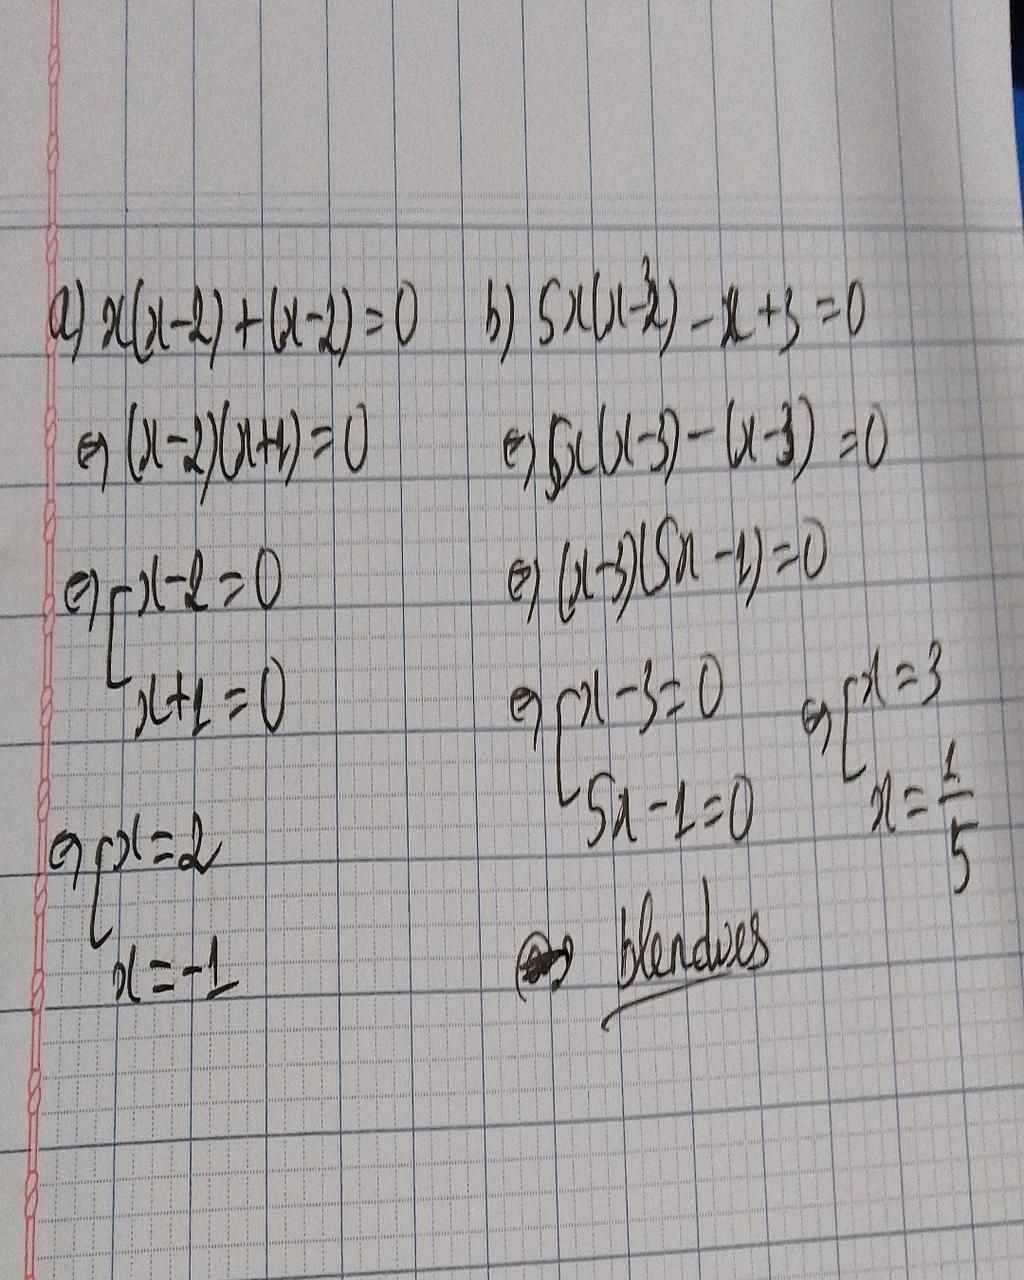 a) x(x-2)+(x-2)=0
⇔ (x-2)(x+1)=0
⇔ [x-2=0
x+1=0
⇔ [x=2
x=-1
b) 5x(x-3)-x+3=0
⇔ 5x(x-3)-(x-3)=0
⇔ (x-3)(5x-1)=0
⇔ [x-3=0 ⇔ [x=3
5x-1=0 x=1/5